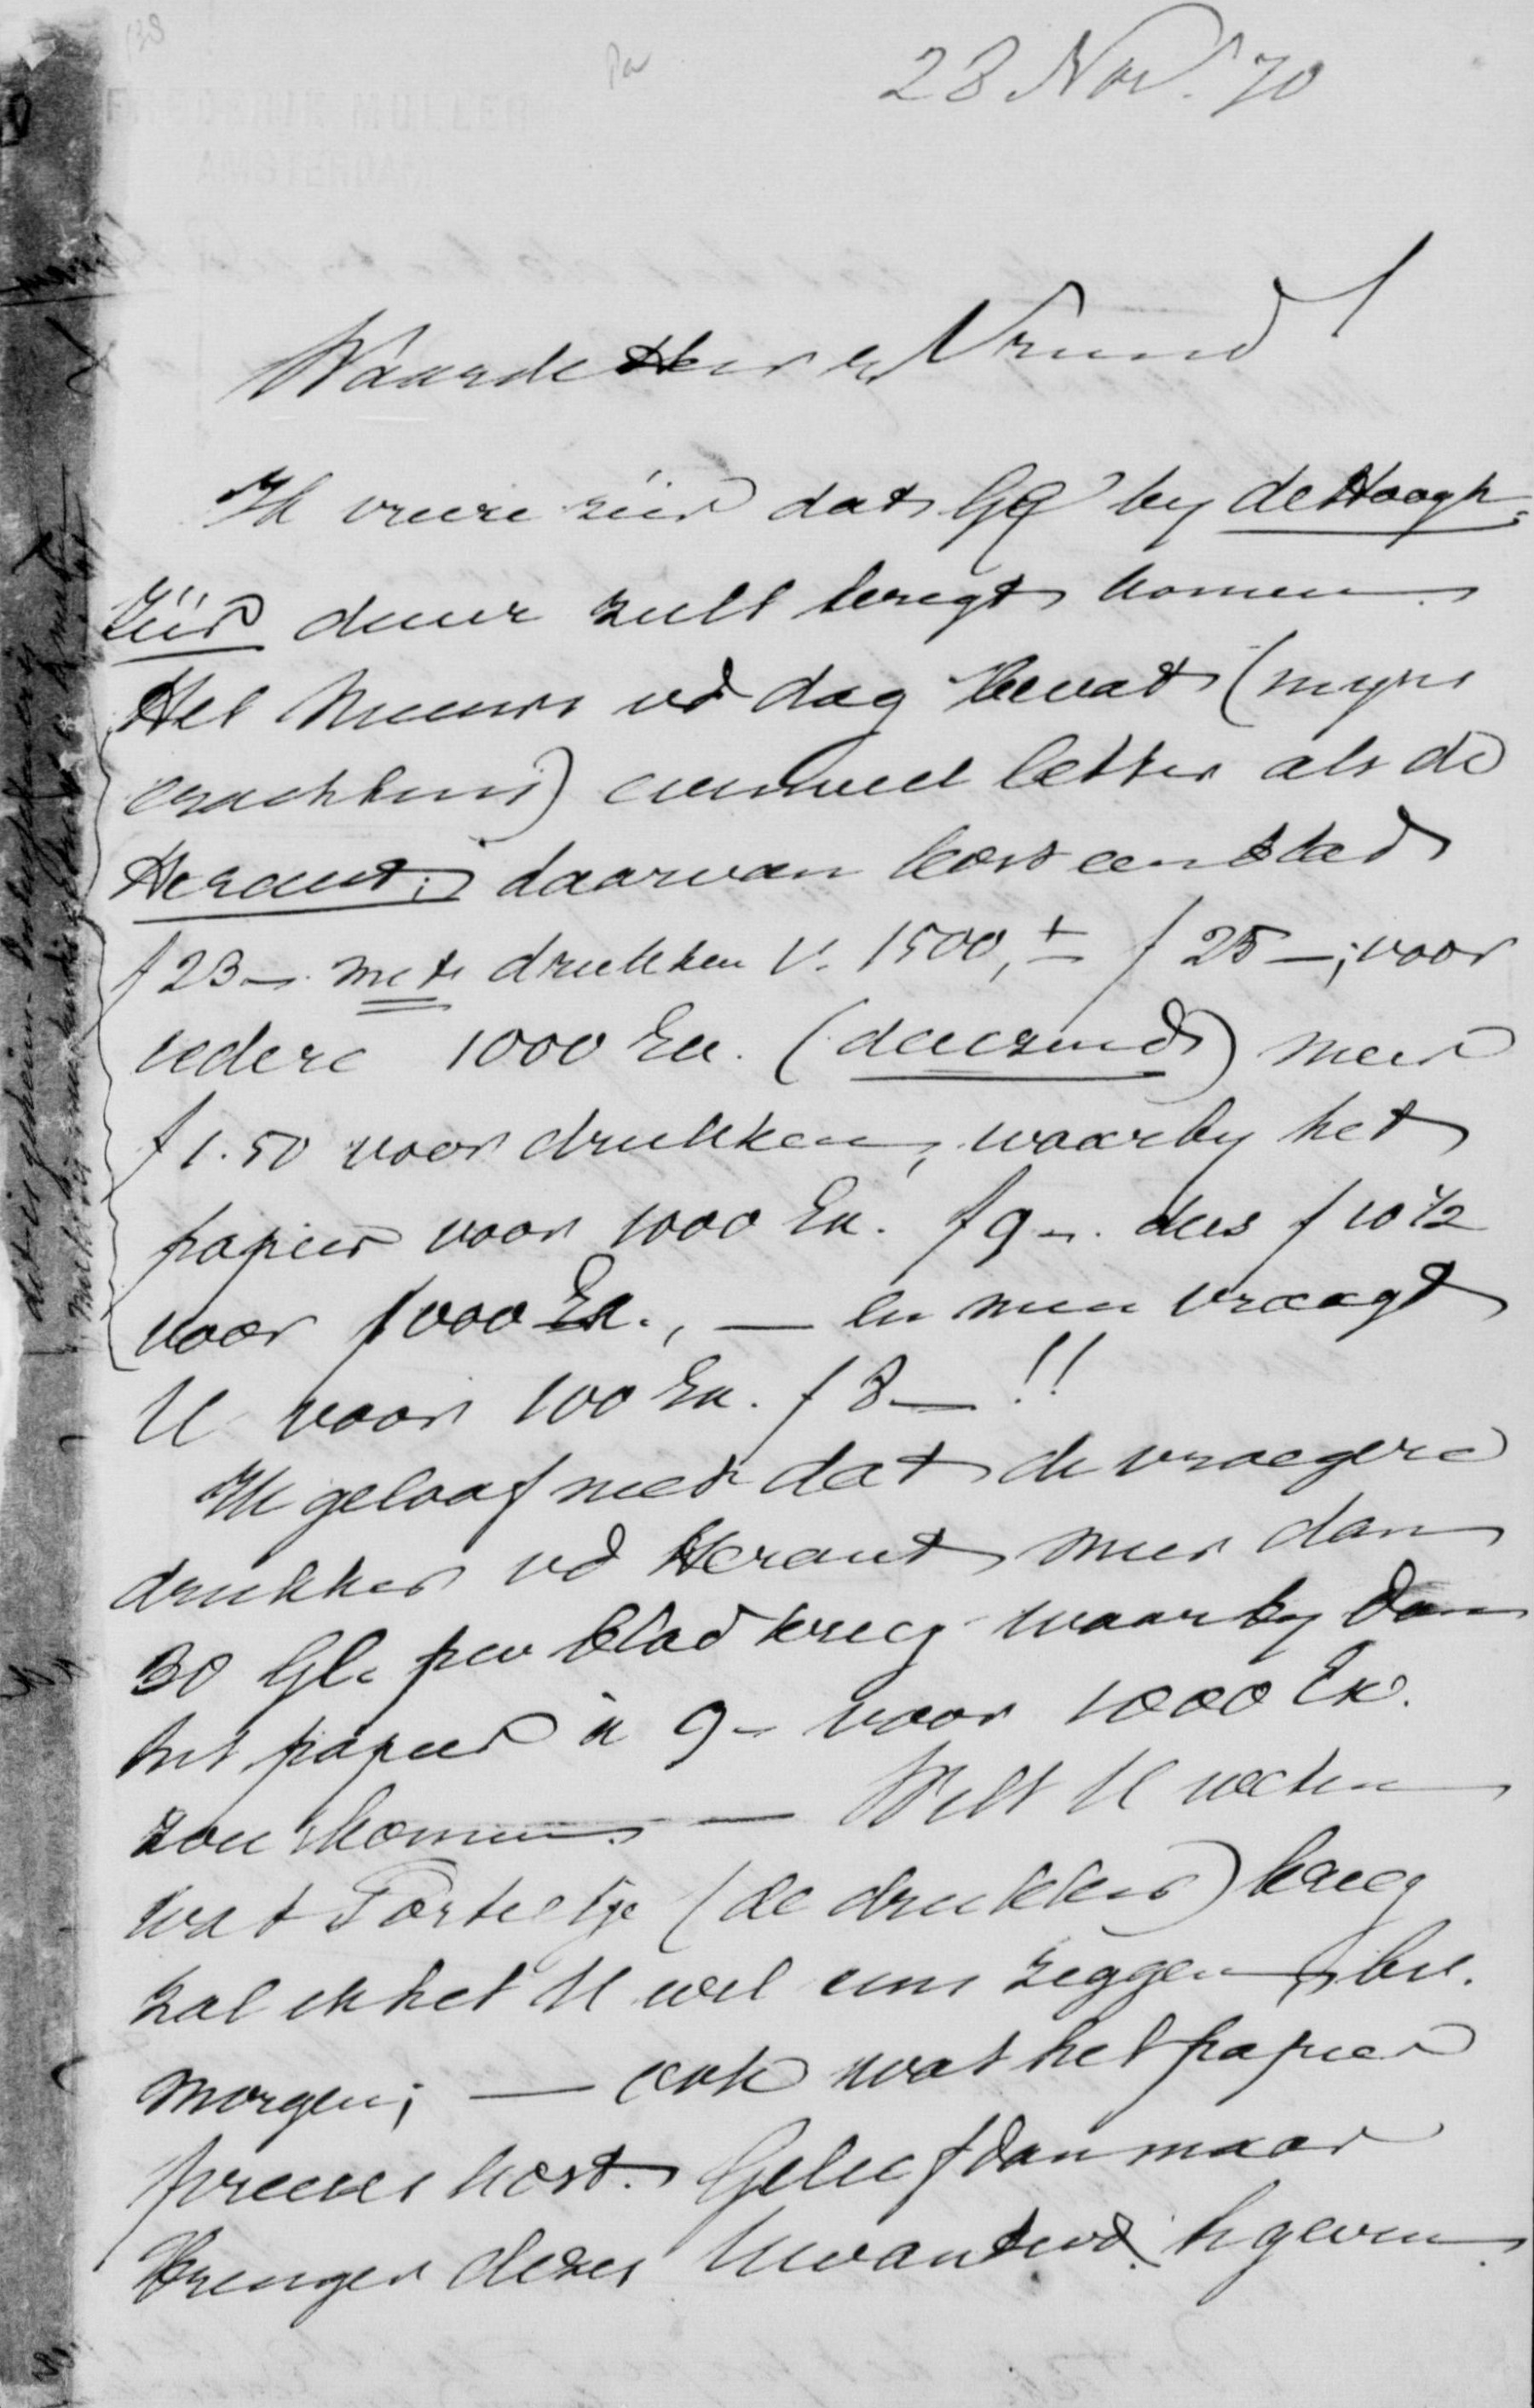 23 Nov. 70
FREDERIK MULLER
AMSTERDAM
Waarde Heer en Vriend
Ik vreeze zéér dat Gij by de Hoogh
zéér duur zult teregt komen.
Het Nieuws vd dag bevat (myns
erachtens) evenveel letter als de
Heraut; daarvan kost een blad
f 23 – met drukken v. 1500, ± f 25 –; voor
iedere 1000 Ex. (duizend) meer
f 1.50 voor drukken, waarby het
papier voor 1000 Ex. f 9 –. dus f 10 1/2
voor 1000 Ex., — en men vraagt
U voor 100 Ex. f 8 — !!
Ik geloof niet dat de vroegere
drukker vd Heraut meer dan
30 Gl. per blad kreeg waarby dan
het papier à 9 – voor 1000 Ex.
zou komen. — Wilt U weten
wat Portielje (de drukker) kreeg
zal ik het U wel eens zeggen,
morgen; — ook wat het papier
precies kost. Gelief dan maar
brenger dezes Uw antwd. te geven.
dit is geheim